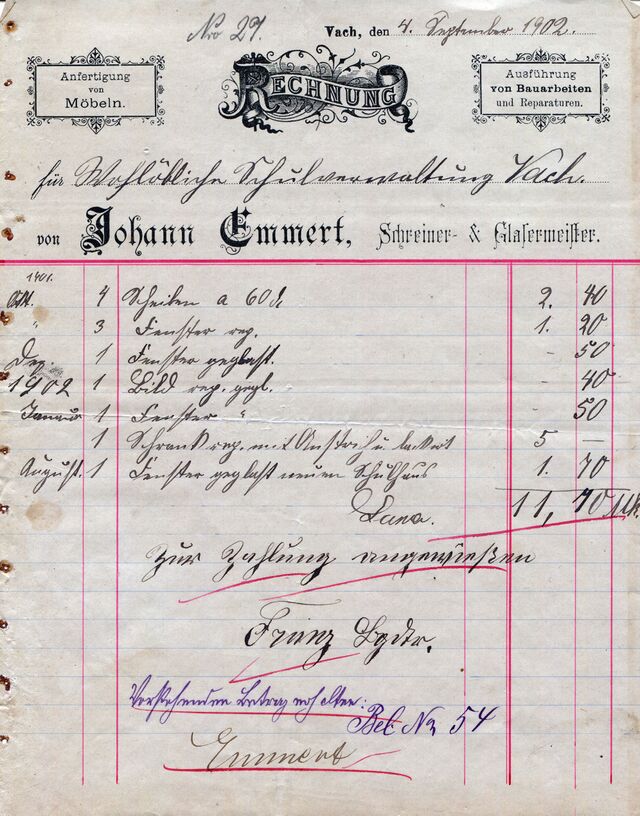 Nro 27.
Vach, den 4. September 1902.
Anfertigung
von
Möbeln.
RECHNUNG
Ausführung
von Bauarbeiten
und Reparaturen.
für Wohllöbliche Schulverwaltung Vach.
von Johann Emmert, Schreiner- & Glasermeister.
1901.
Okt. 4 Scheiben a 60 d. 2. 40
" 3 Fenster rep. 1. 20
Dez. 1 Fenster geglast. - 50
1902 1 Bild rep. gegl. - 40
Januar 1 Fenster " - 50
1 Schrank rep. mit Anstrich u. lackert 5 —
August. 1 Fenster geglast neuen Schulhaus 1. 70
11, 70 Mk.
Zur Zahlung angewießen
Franz
Vorstehenden Betrag erhalten:
Bel. No 54
Emmert